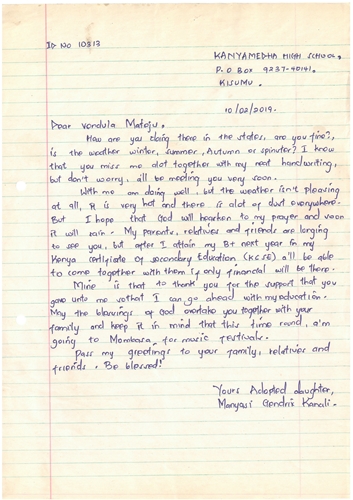 ID NO 10313
KANYAMEDHA HIGH SCHOOL,
P.O BOX 9237-40141,
KISUMU.
10/02/2019.
Dear Vendula Matoju.
How are you doing there in the states, are you fine?,
is the weather winter, summer, Autumn or spinter? I know
that you miss me alot together with my neat handwriting,
but don't worry, i'll be meeting you very soon.
With me am doing well, but the weather isn't pleasing
at all, It is very hot and there is alot of dust everywhere.
But I hope that God will hearken to my prayer and soon
it will rain. My parents, relatives and friends are longing
to see you, but after I attain my B+ next year in my
Kenya certificate of secondary Education (KCSE) a'll be able
to come together with them is only financial will be there.
Mine is that to thank you for the support that you
gave unto me sothat I can go ahead with my education.
May the blessings of God overtake you together with your
family and keep it in mind that this time round, a'm
going to Mombasa, for music festivals.
Pass my greetings to your family, relatives and
friends. Be blessed!
Yours Adopted daughter,
Manyasi Gendrix Kanali.